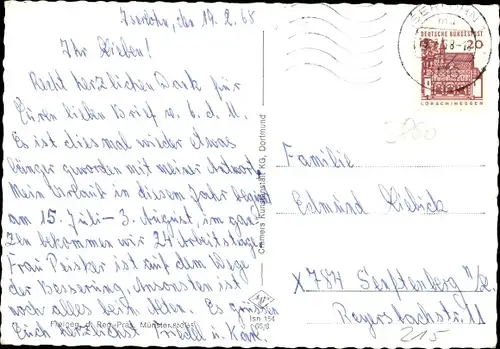 Iserlohn, den 19.2.68
Ihr Lieben!
Recht herzlichen Dank für
Euren lieben Brief v. 6. d. M.
Es ist diesmal wieder etwas
länger geworden mit meiner Antwort.
Mein Urlaub in diesem Jahr beginnt
am 15. Juli - 3. August, im gan-
zen bekommen wir 24 Arbeitstage.
Frau Peisker ist auf dem Wege
der Besserung. Ansonsten ist
noch alles beim Alten. Es grüssen
Euch herzlichst Friedel u. Karl
Cramers Kunstanstalt KG, Dortmund
Isn 154
DEUTSCHE BUNDESPOST
20
LORSCH/HESSEN
Familie
Edmund
X 784 Senftenberg N/L
Reyersbachstr. 11
215